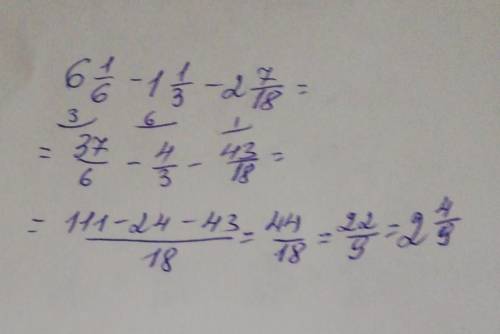 6 1/6 - 1 1/3 - 2 7/18 =
3 6 1
= 37/6 - 4/3 - 43/18 =
= 111-24-43/18 = 44/18 = 22/9 = 2 4/9